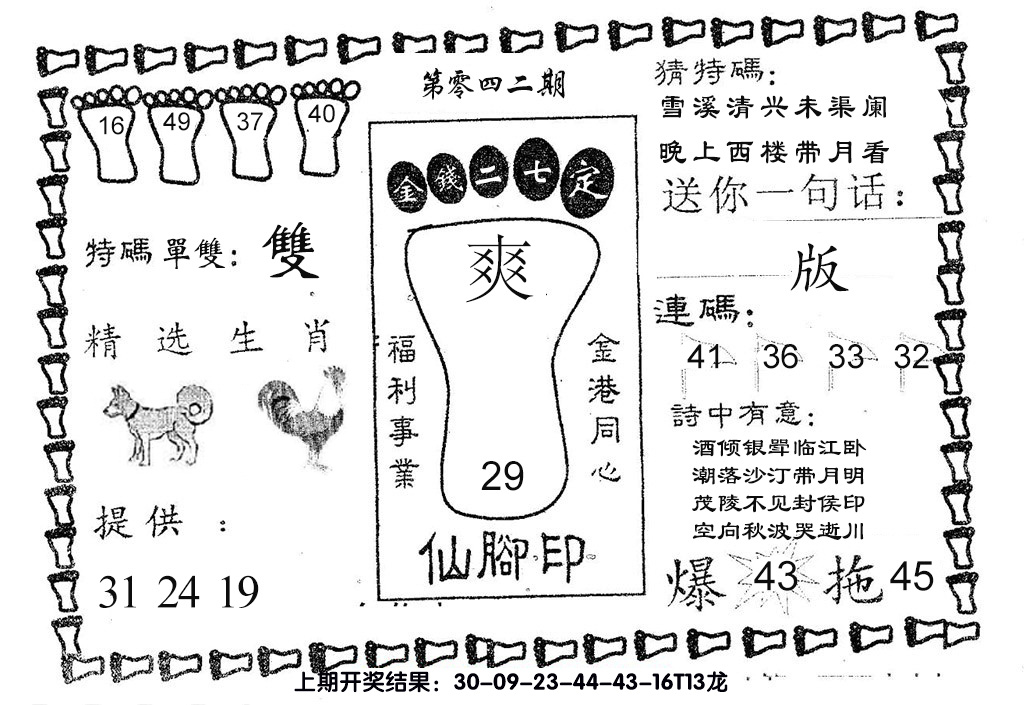 第零四二期
16 49 37 40
特碼單雙：雙
精选生肖
提供：
31 24 19
金錢二七定
爽
福利事業
金港同心
29
仙腳印
猜特碼：
雪溪清兴未渠阑
晚上西楼带月看
送你一句话：
版
連碼：
41 36 33 32
詩中有意：
酒倾银斝临江卧
潮落沙汀带月明
茂陵不见封侯印
空向秋波哭逝川
爆 43 拖 45
上期开奖结果：30-09-23-44-43-16T13龙